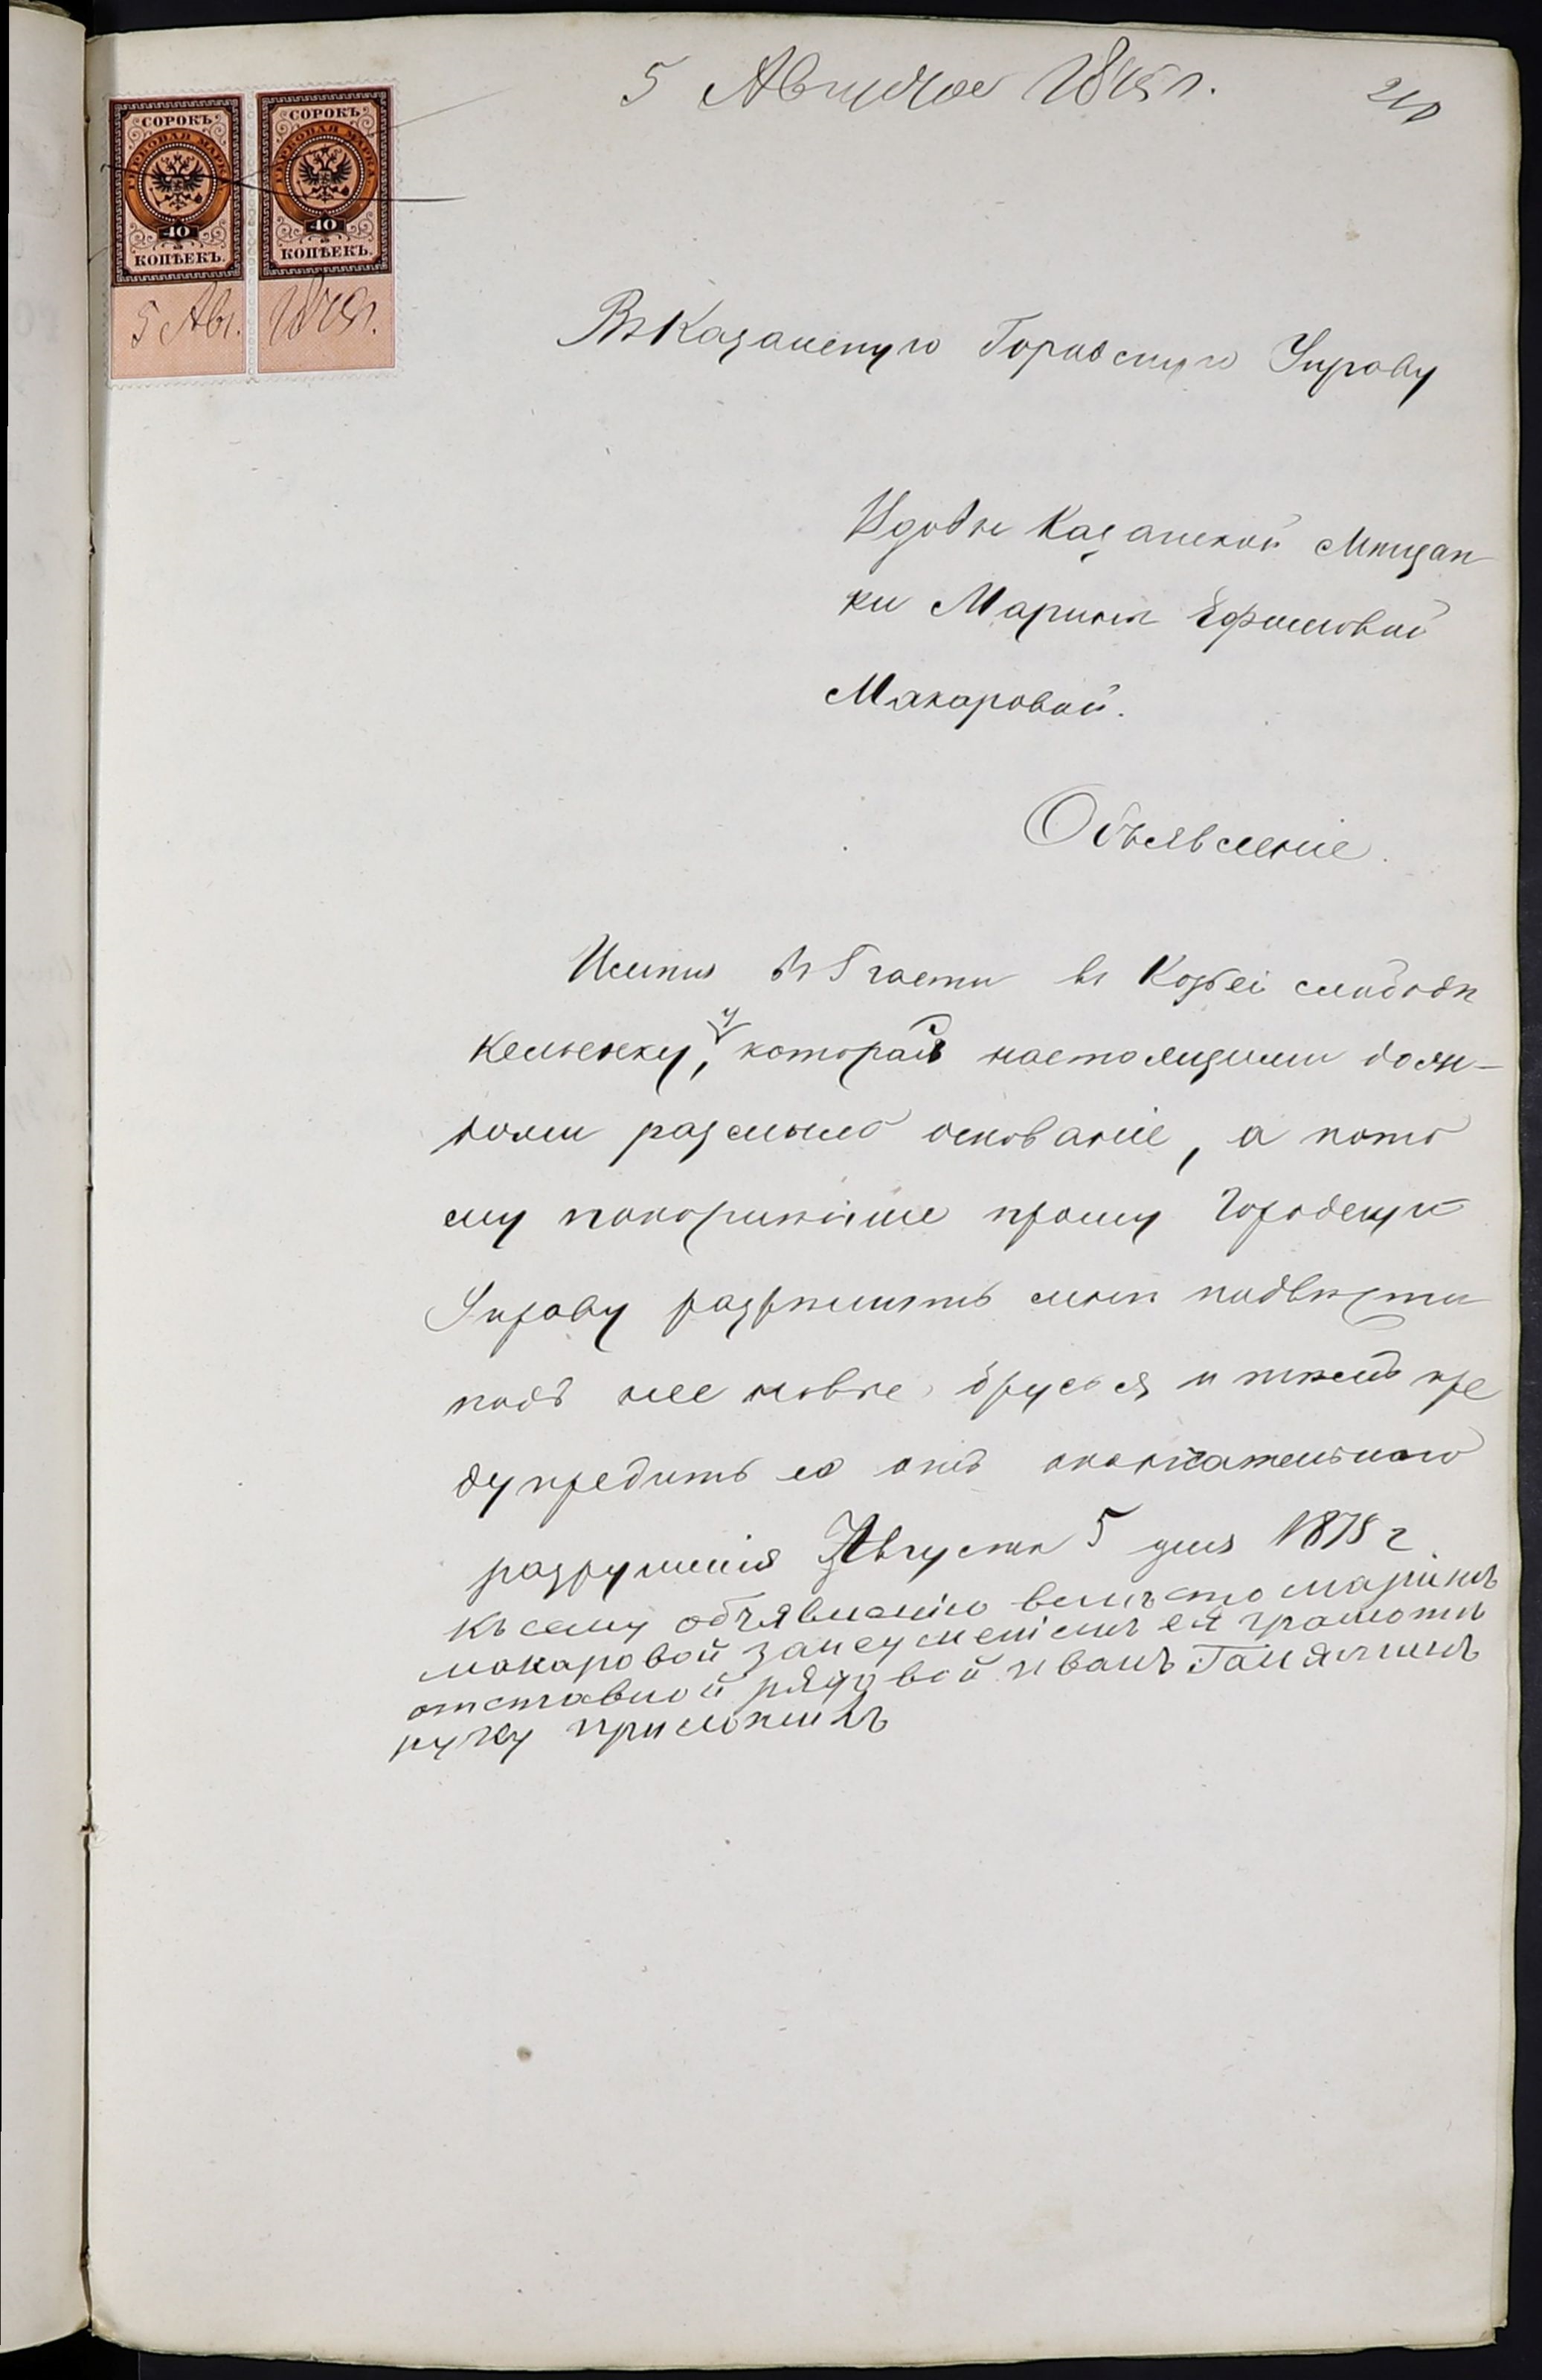 5 Августа 1878 г.
СОРОКЪ СОРОКЪ
ГЕРБОВАЯ МАРКА ГЕРБОВАЯ МАРКА
40 40
КОПѢЕКЪ. КОПѢЕКЪ.
5 Авг. 1878 г.
Въ Казанскую Городскую Управу
Вдовы Казанской Мѣщан
ки Марины Ефимовой
Макаровой.
Объявленіе.
Имѣя въ 5 части въ Козьей слободѣ
кельенку, у которой настоящими дож-
дями размыло основаніе, а пото
му покорнѣйше прошу Городскую
Управу разрѣшить мнѣ подвѣсти
подъ нее новые брусья и тѣмъ пре
дупредить ее отъ окончательнаго
разрушенія Августа 5 дня 1878 г
Къ сему объявлению вместо марины
макаровой занеумениемъ ея грамоты
отставной рядовой иванъ
руку приложилъ